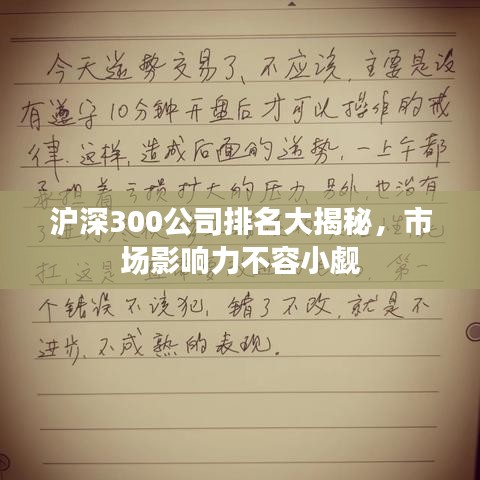 今天逆势交易了、不应该，主要是没
有遵守10分钟开盘后才可以操作的戒
律.这样，造成后面的逆势，一上午都
承担着亏损扩大的压力.另外，也没有
沪深300公司排名大揭秘，市
场影响力不容小觑
扛，这是
第一
个错误不该犯，错了不改，就是不
进步、不成熟的表现。